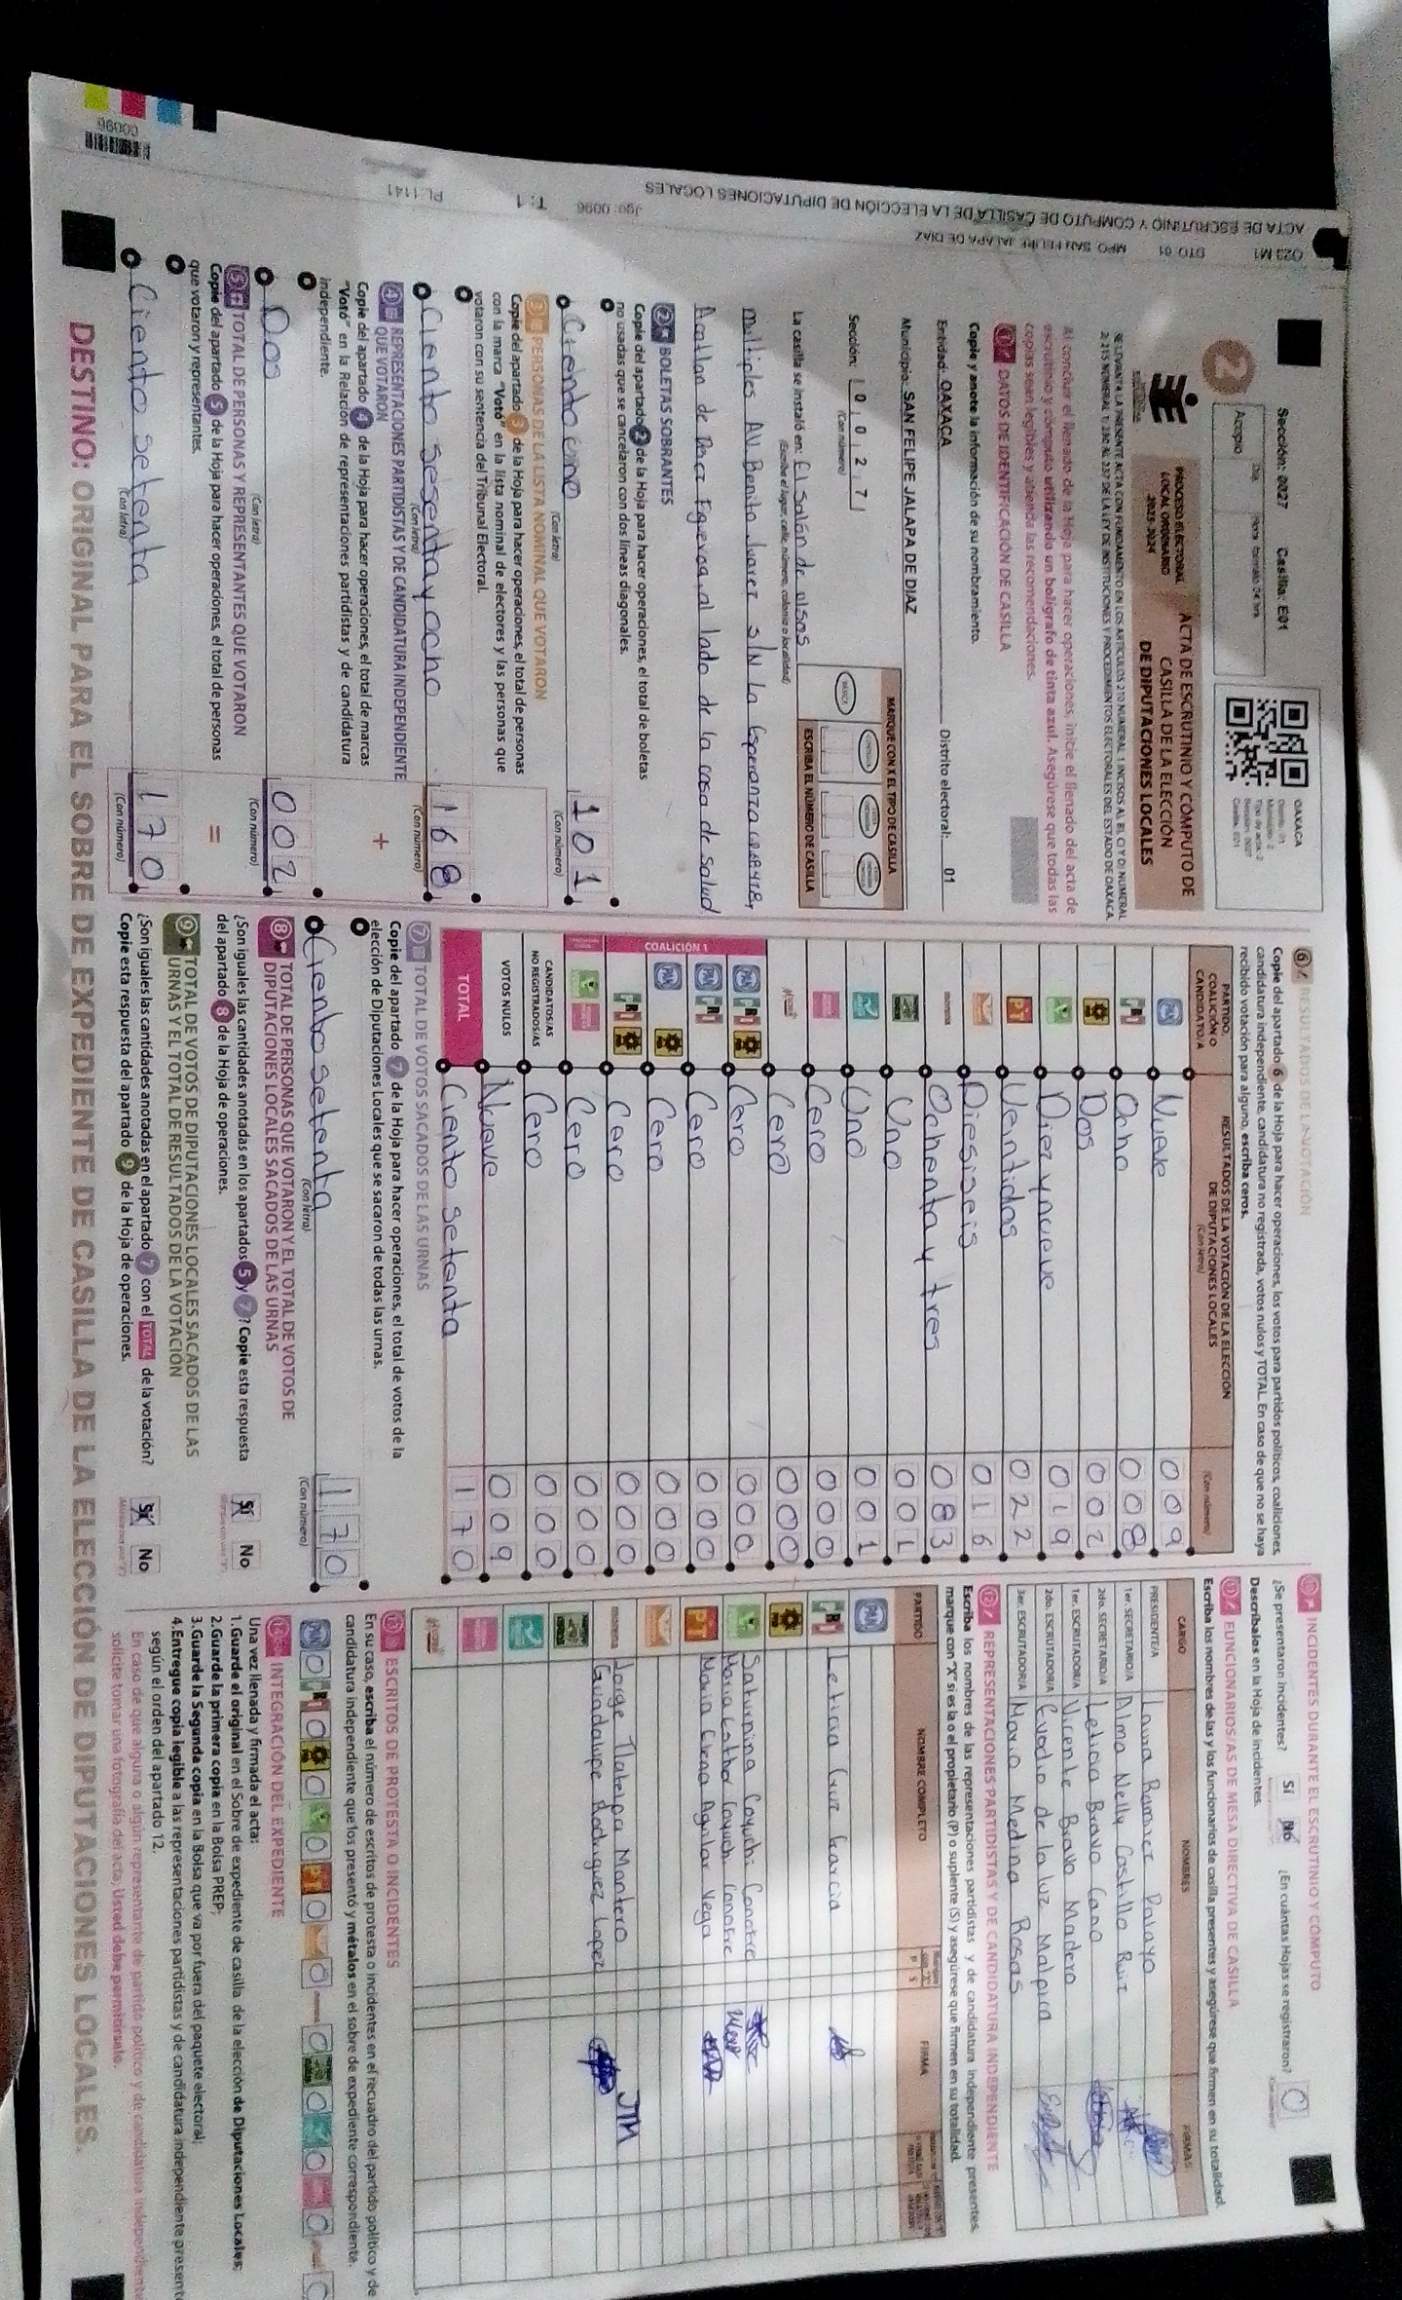 Sección: 0027 Casilla: E01
OAXACA
Acopio
2
PROCESO ELECTORAL
LOCAL ORDINARIO
2023-2024
ACTA DE ESCRUTINIO Y CÓMPUTO DE
CASILLA DE LA ELECCIÓN
DE DIPUTACIONES LOCALES
Al concluir el llenado de la Hoja para hacer operaciones, inicie el llenado del acta de
escrutinio y cómputo utilizando un bolígrafo de tinta azul. Asegúrese que todas las
copias sean legibles y atienda las recomendaciones.
1 DATOS DE IDENTIFICACIÓN DE CASILLA
Copie y anote la información de su nombramiento.
Entidad: OAXACA Distrito electoral: 01
Municipio: SAN FELIPE JALAPA DE DIAZ
Sección: 0 0 2 7
(Con número)
MARQUE CON X EL TIPO DE CASILLA
ESCRIBA EL NÚMERO DE CASILLA
La casilla se instaló en: El Salón de usos
(Escriba el lugar, calle, número, colonia o localidad)
multiples AV. Benito Juarez S/N La Esperanza
al lado de la casa de Salud
2 BOLETAS SOBRANTES
Copie del apartado 2 de la Hoja para hacer operaciones, el total de boletas
no usadas que se cancelaron con dos líneas diagonales.
Ciento uno
(Con letra)
101
(Con número)
3 PERSONAS DE LA LISTA NOMINAL QUE VOTARON
Copie del apartado 3 de la Hoja para hacer operaciones, el total de personas
con la marca "Votó" en la lista nominal de electores y las personas que
votaron con su sentencia del Tribunal Electoral.
Ciento sesenta y ocho
(Con letra)
168
(Con número)
4 REPRESENTACIONES PARTIDISTAS Y DE CANDIDATURA INDEPENDIENTE
QUE VOTARON
Copie del apartado 4 de la Hoja para hacer operaciones, el total de marcas
"Votó" en la Relación de representaciones partidistas y de candidatura
independiente.
+
Dos
(Con letra)
002
(Con número)
5 TOTAL DE PERSONAS Y REPRESENTANTES QUE VOTARON
Copie del apartado 5 de la Hoja para hacer operaciones, el total de personas
que votaron y representantes.
=
Ciento setenta
(Con letra)
170
(Con número)
6 RESULTADOS DE LA VOTACIÓN
Copie del apartado 6 de la Hoja para hacer operaciones, los votos para partidos políticos, coaliciones,
candidatura independiente, candidatura no registrada, votos nulos y TOTAL. En caso de que no se haya
recibido votación para alguno, escriba ceros.
PARTIDO,
COALICIÓN O
CANDIDATO/A
RESULTADOS DE LA VOTACIÓN DE LA ELECCIÓN
DE DIPUTACIONES LOCALES
(Con letra)
(Con número)
PAN Nueve 009
PRI Ocho 008
Dos 002
Diez y nueve 019
PT Veintidos 022
Diesiseis 016
morena Ochenta y tres 083
Uno 001
Uno 001
Cero 000
Cero 000
COALICIÓN 1
PAN PRI Cero 000
PAN PRI Cero 000
PAN Cero 000
PRI Cero 000
Cero 000
CANDIDATOS/AS
NO REGISTRADOS/AS Cero 000
VOTOS NULOS Nueve 009
TOTAL Ciento setenta 170
7 TOTAL DE VOTOS SACADOS DE LAS URNAS
Copie del apartado 7 de la Hoja para hacer operaciones, el total de votos de la
elección de Diputaciones Locales que se sacaron de todas las urnas.
Ciento setenta
(Con letra)
170
(Con número)
8 TOTAL DE PERSONAS QUE VOTARON Y EL TOTAL DE VOTOS DE
DIPUTACIONES LOCALES SACADOS DE LAS URNAS
¿Son iguales las cantidades anotadas en los apartados 5 y 7? Copie esta respuesta
del apartado 8 de la Hoja de operaciones.
Sí No
9 TOTAL DE VOTOS DE DIPUTACIONES LOCALES SACADOS DE LAS
URNAS Y EL TOTAL DE RESULTADOS DE LA VOTACIÓN
¿Son iguales las cantidades anotadas en el apartado 7 con el TOTAL de la votación?
Copie esta respuesta del apartado 9 de la Hoja de operaciones.
Sí No
10 INCIDENTES DURANTE EL ESCRUTINIO Y CÓMPUTO
¿Se presentaron incidentes? Sí No ¿En cuántas Hojas se registraron? 0
Descríbalos en la Hoja de incidentes.
11 FUNCIONARIOS/AS DE MESA DIRECTIVA DE CASILLA
Escriba los nombres de las y los funcionarios de casilla presentes y asegúrese que firmen en su totalidad.
CARGO NOMBRES FIRMAS
PRESIDENTE/A Laura Ramirez Palayo
1er. SECRETARIO/A Alma Nelly Castillo Ruiz
2do. SECRETARIO/A Leticia Bravo Cano
1er. ESCRUTADOR/A Vicente Bravo Madero
2do. ESCRUTADOR/A Evodio de la luz Malpica
3er. ESCRUTADOR/A Mario Medina Rosas
12 REPRESENTACIONES PARTIDISTAS Y DE CANDIDATURA INDEPENDIENTE
Escriba los nombres de las representaciones partidistas y de candidatura independiente presentes,
marque con "X" si es la o el propietario (P) o suplente (S) y asegúrese que firmen en su totalidad.
PARTIDO NOMBRE COMPLETO FIRMA
PAN
PRI Leticia Cruz Garcia
Saturnina Cayuchi
Maria Esther Cayuchi
PT Maria Elena Aguilar Vega
morena Jorge Tlatelpa Montero JTM
Guadalupe Rodriguez Lopez
13 ESCRITOS DE PROTESTA O INCIDENTES
En su caso, escriba el número de escritos de protesta o incidentes en el recuadro del partido político y de
candidatura independiente que los presentó y métalos en el sobre de expediente correspondiente.
14 INTEGRACIÓN DEL EXPEDIENTE
Una vez llenada y firmada el acta:
1. Guarde el original en el Sobre de expediente de casilla de la elección de Diputaciones Locales;
2. Guarde la primera copia en la Bolsa PREP;
3. Guarde la Segunda copia en la Bolsa que va por fuera del paquete electoral;
4. Entregue copia legible a las representaciones partidistas y de candidatura independiente
según el orden del apartado 12.
En caso de que alguna o algún representante de partido político y de candidatura independiente
solicite tomar una fotografía del acta, Usted debe permitírselo.
DESTINO: ORIGINAL PARA EL SOBRE DE EXPEDIENTE DE CASILLA DE LA ELECCIÓN DE DIPUTACIONES LOCALES.
ACTA DE ESCRUTINIO Y COMPUTO DE CASILLA DE LA ELECCIÓN DE DIPUTACIONES LOCALES
DTO 01 MPO SAN FELIPE JALAPA DE DIAZ
Jgo: 0096 T: 1 PL:1141
00096